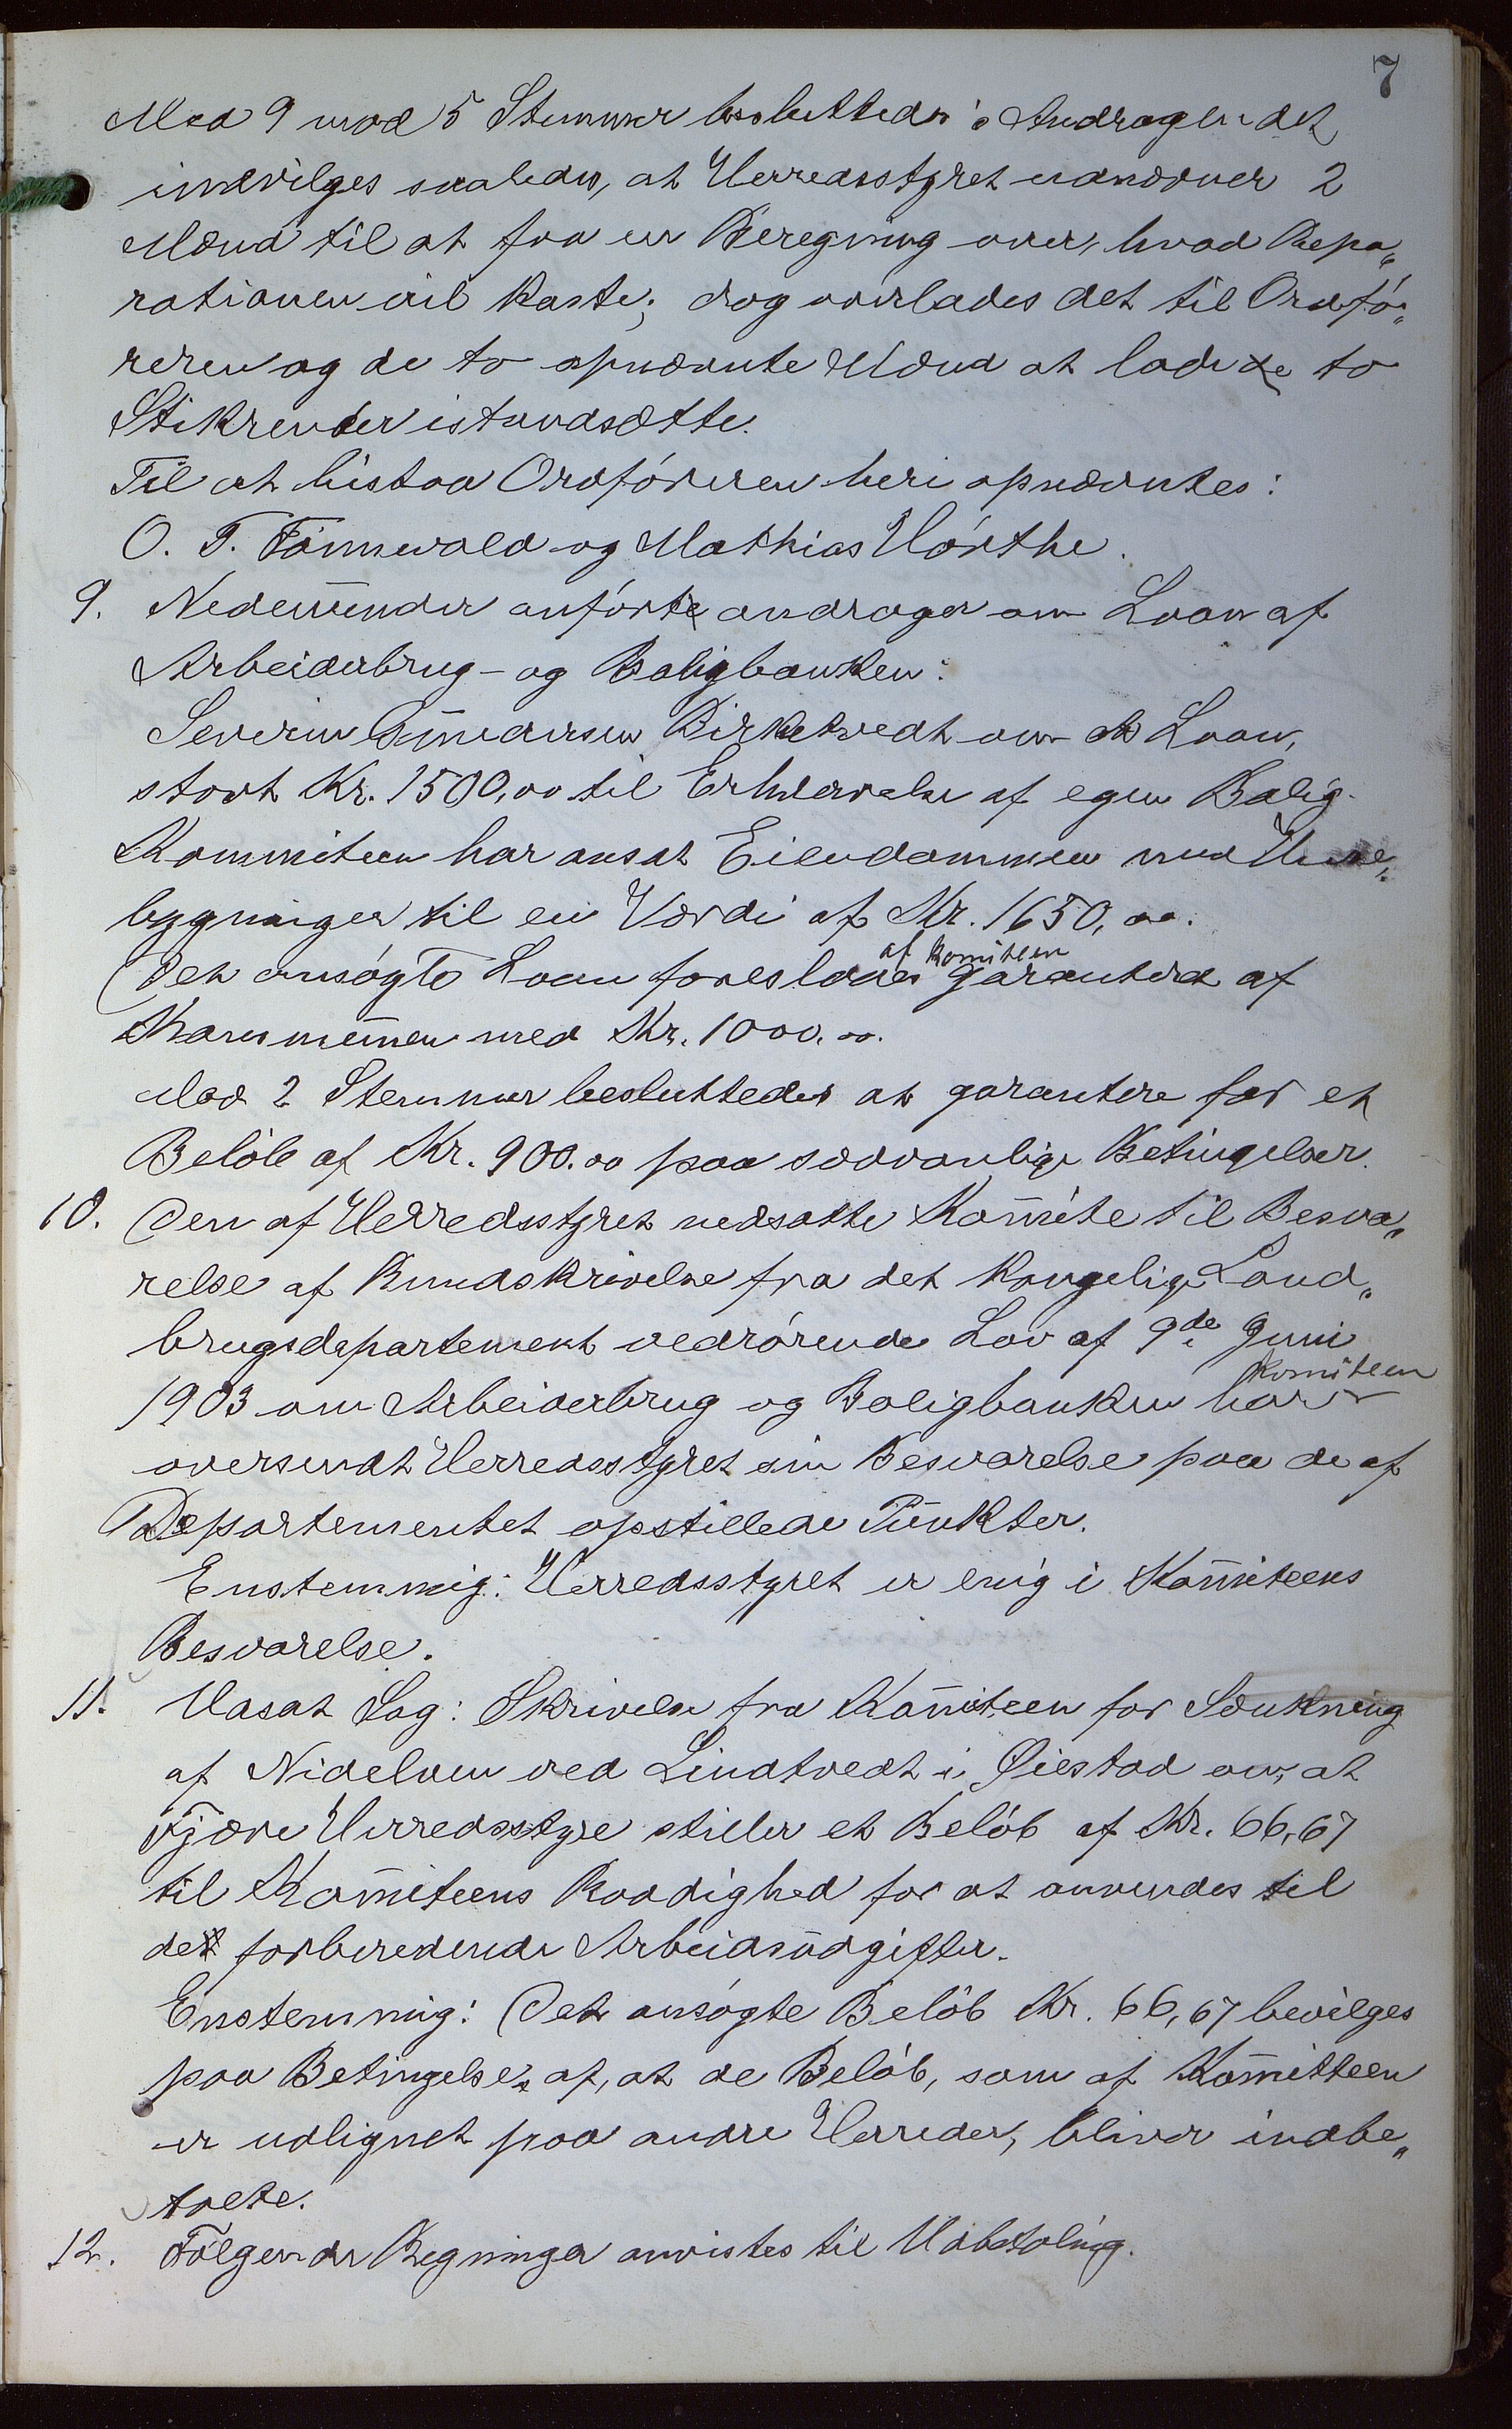 7
Med 9 mod 5 Stemmer besluttedes: Andragendet
indvilges saaledes, at Herredsstyret udnævner 2
Mænd til at faa en Beregning over, hvad Repa„
rationen vil koste; dog overlades det til Ordfø„
reren og de to opnævnte Mænd at lade de to
Stikrender istandsætte.
Til at bistaa Ordføreren heri opnævntes:
O. T. Fønnevold og Mathias Hørthe.
9. Nedenunder anførte andrager om Laan af
Arbeiderbrug- og Boligbanken:
Severin Gundersen Birketvedt om et Laan,
stort Kr. 1500,00 til Erhvervelse af egen Bolig.
Kommiteen har ansat Eiendommen med Huse„
bygninger til en Værdi af Kr. 1650,00.
af Komiteen
Det ansøgte Laan foreslaaes garanteret af
Kommunen med Kr. 1000.00.
Mod 2 Stemmer besluttedes at garantere for et
Beløb af Kr. 900.00 paa sædvanlige Betingelser.
10. Den af Herredsstyret nedsatte Komite til Besva„
relse af Rundskrivelse fra det kongelige Land„
brugsdepartement vedrørende Lov af 9de Juni
Komiteen
1903 om Arbeiderbrug og Boligbanken har
oversendt Herredsstyret sin Besvarelse paa de af
Departementet opstillede Punkter.
Enstemmig: Herredsstyret er enig i Komiteens
Besvarelse.
11. Udsat Sag: Skrivelse fra Komiteen for Sænkning
af Nidelven ved Lindtvedt i Øiestad om, at
Fjære Herredsstyre stiller et Beløb af Kr. 66,67
til Komiteens Raadighed for at anvendes til
de forberedende Arbeidsudgifter.
Enstemmig: Det ansøgte Beløb Kr. 66,67 bevilges
paa Betingelse af, at de Beløb, som af Komitteen
er udlignet paa andre Herreder, bliver indbe„
talte.
12. Følgende Regninger anvistes til Udbetaling.